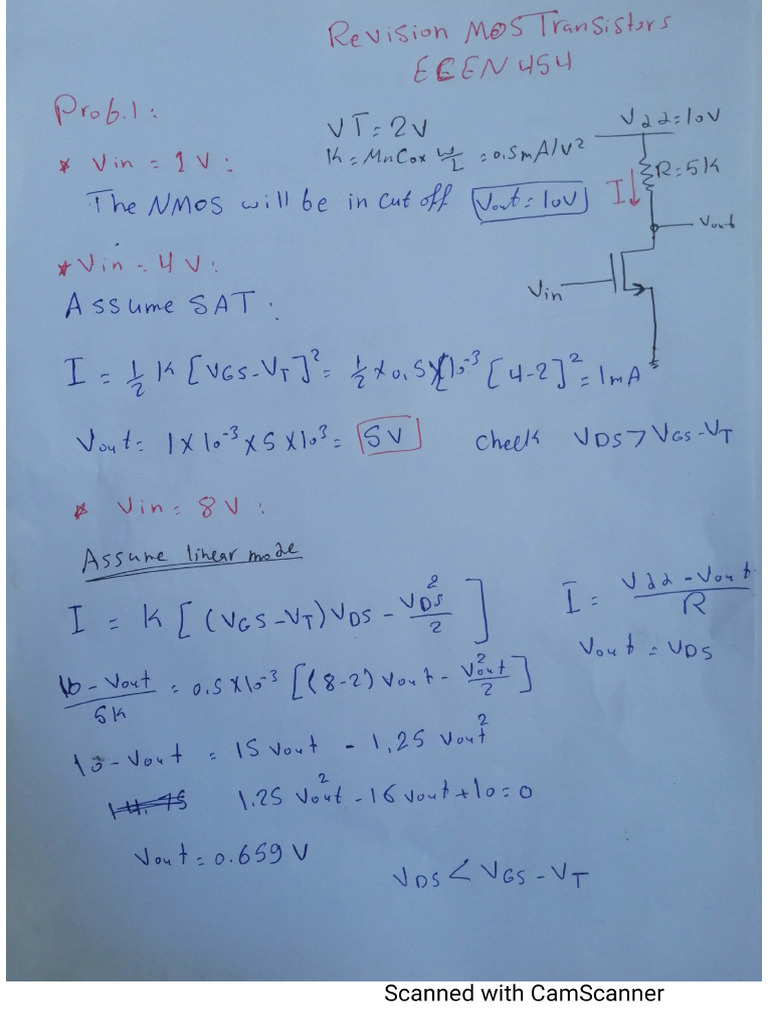 Revision MOS Transistors
ECEN 454
Prob.1:
VT = 2V
K = MnCox W/L = 0.5mA/V²
Vdd=10V
R=5K
I↓
Vout
Vin
* Vin = 1 V:
The NMOS will be in cut off Vout=10V
* Vin = 4 V:
Assume SAT:
I = 1/2 K [VGS-VT]² = 1/2 × 0.5 × 10⁻³ [4-2]² = 1mA
Vout= 1 × 10⁻³ × 5 × 10³ = 5V check VDS > VGS-VT
* Vin = 8 V:
Assume linear mode
I = K [ (VGS-VT) VDS - VDS²/2 ] I = Vdd - Vout / R
Vout = VDS
10 - Vout / 5K = 0.5 × 10⁻³ [(8-2) Vout - Vout²/2]
10 - Vout = 15 Vout - 1.25 Vout²
1.25 Vout² - 16 Vout + 10 = 0
Vout = 0.659 V
VDS < VGS - VT
Scanned with CamScanner